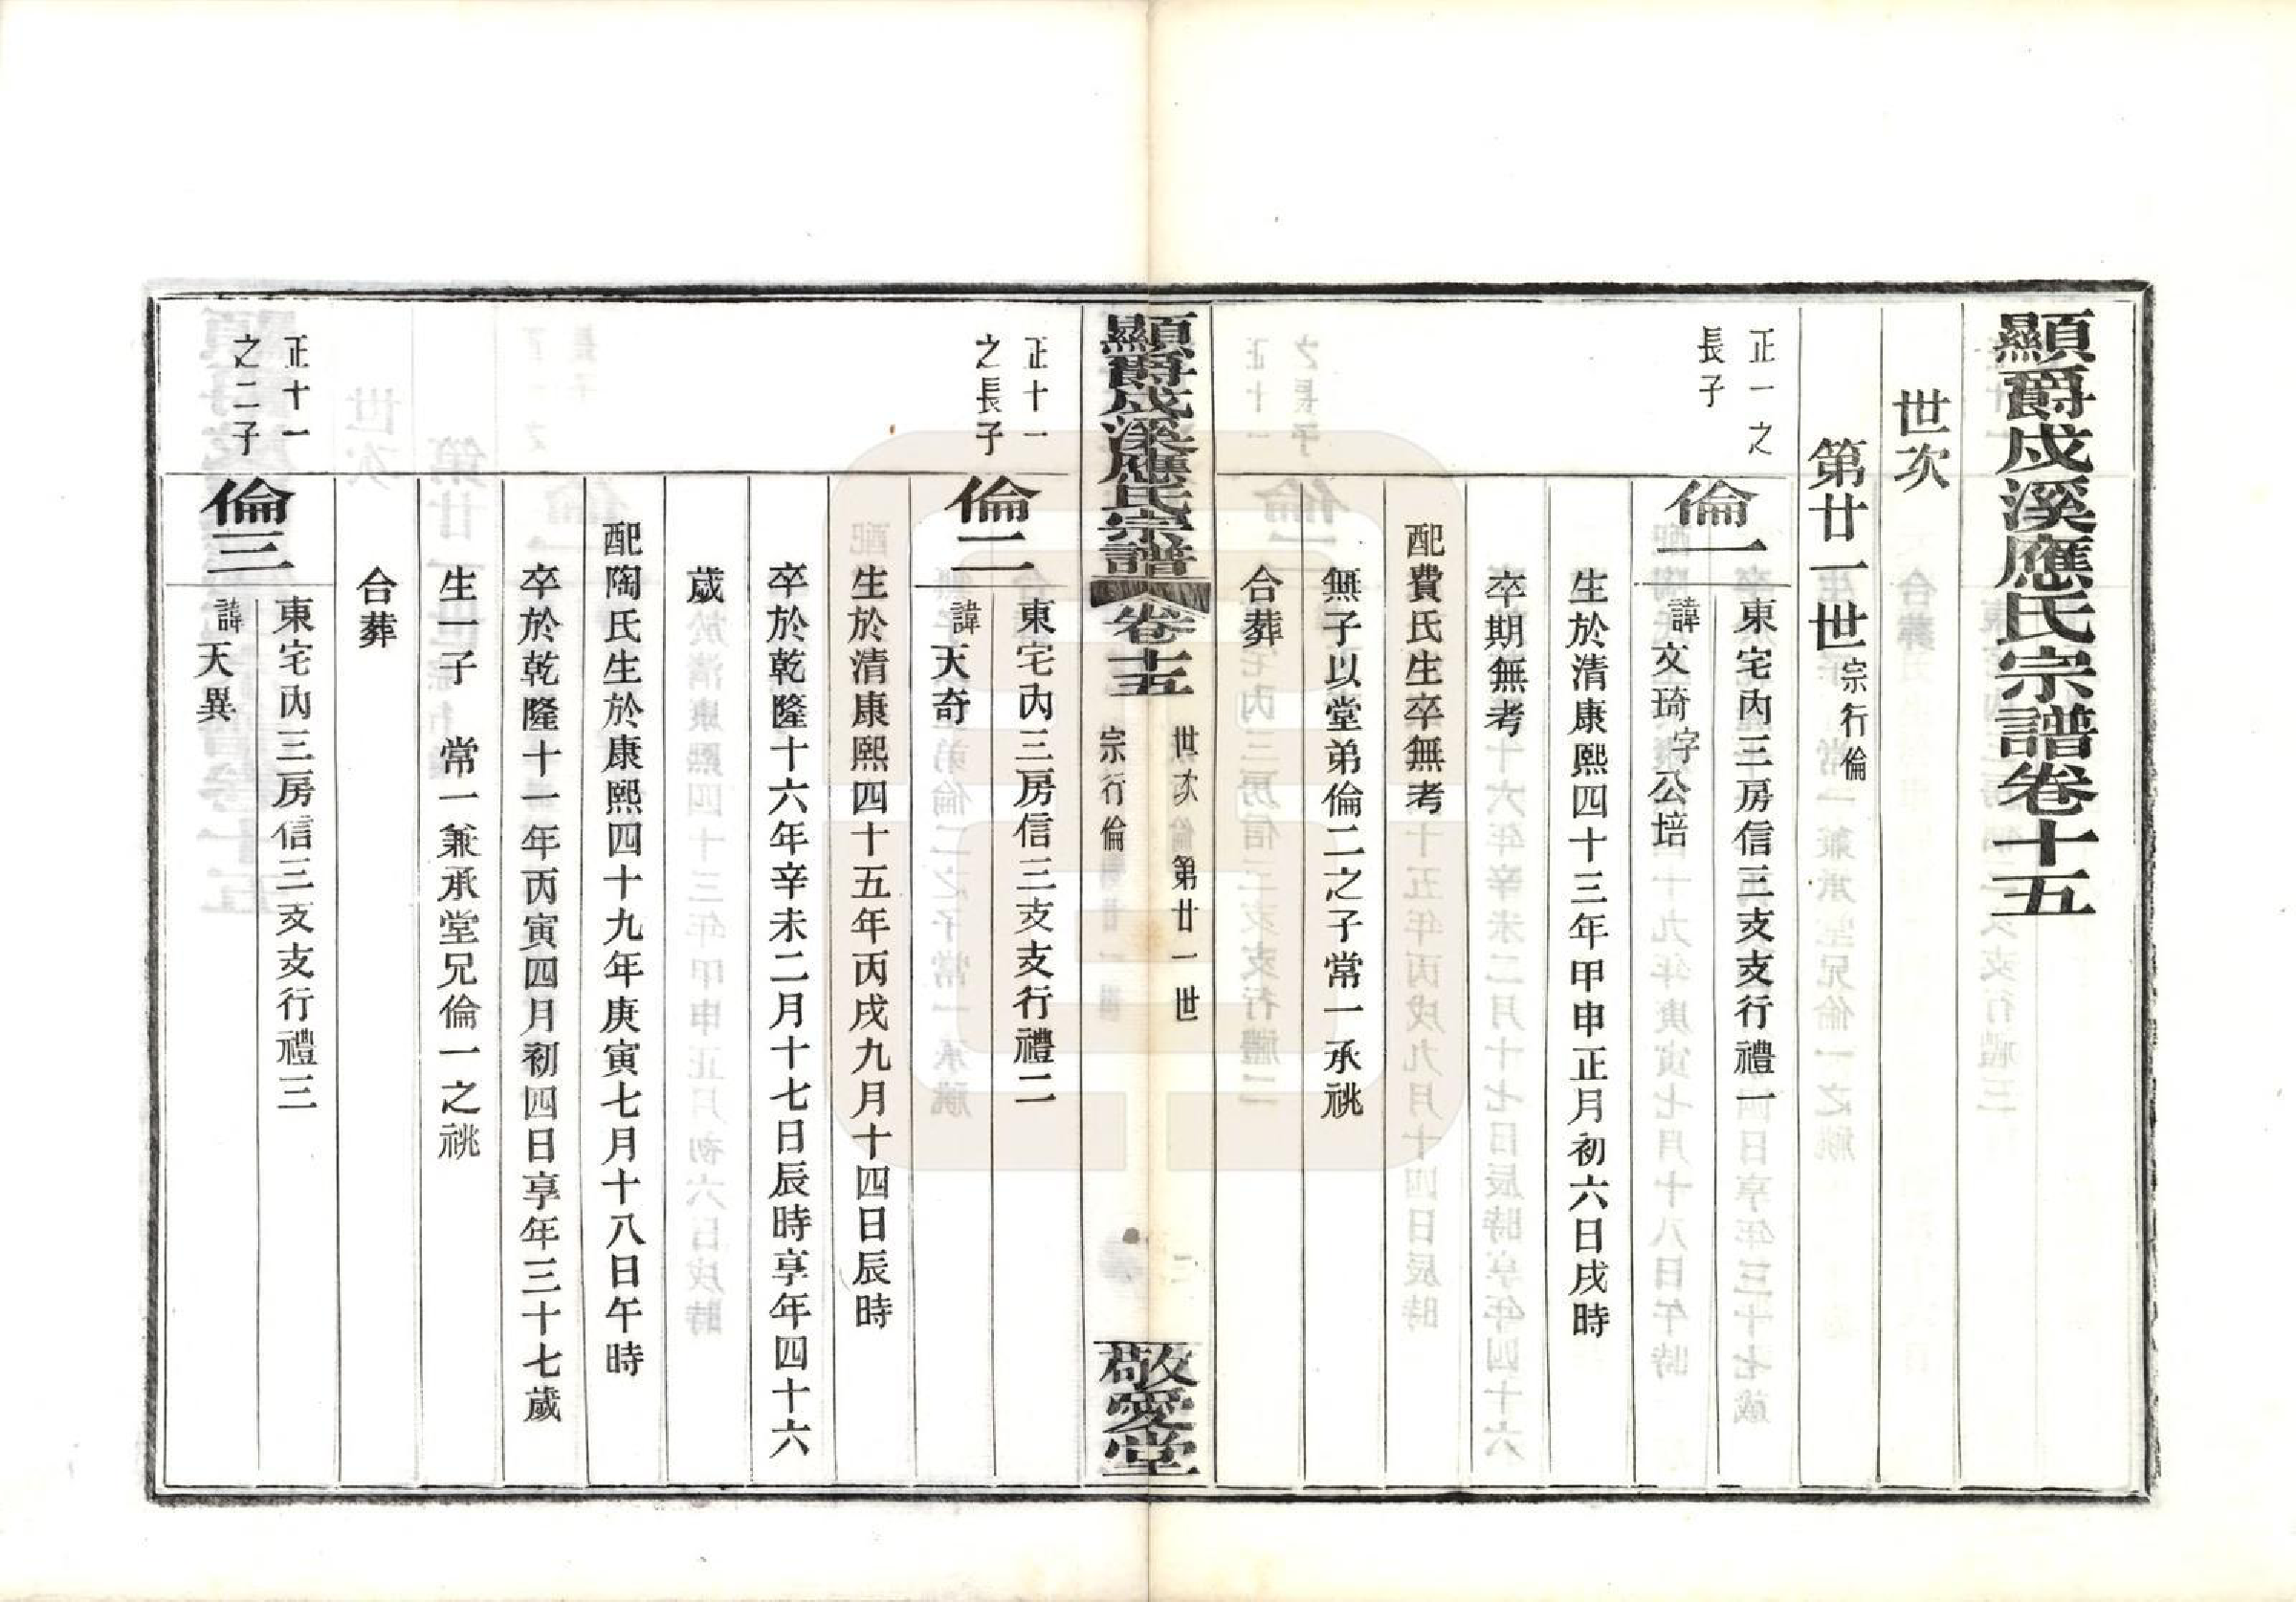 顯爵戍溪應氏宗譜卷十五
世次
第廿一世 宗行倫
正一之
長子
倫一
東宅內三房信三支支行禮一
諱文琦字公培
生於清康熙四十三年甲申正月初六日戌時
卒期無考
配費氏生卒無考
無子以堂弟倫二之子常一承祧
合葬
顯爵戍溪應氏宗譜
卷十五
世次 第廿一世
宗行倫
敬愛堂
正十一
之長子
倫二
東宅內三房信三支支行禮二
諱天奇
生於清康熙四十五年丙戌九月十四日辰時
卒於乾隆十六年辛未二月十七日辰時享年四十六
歲
配陶氏生於康熙四十九年庚寅七月十八日午時
卒於乾隆十一年丙寅四月初四日享年三十七歲
生一子 常一兼承堂兄倫一之祧
合葬
正十一
之二子
倫三
東宅內三房信三支支行禮三
諱天異